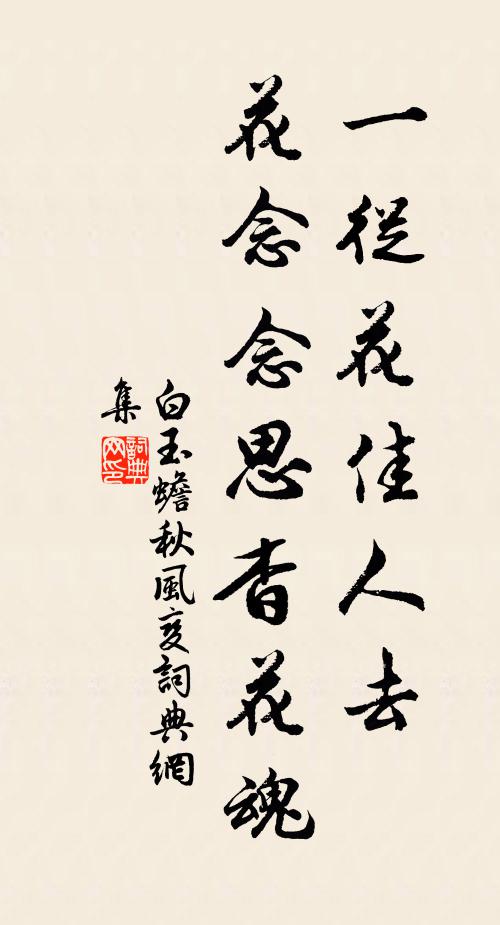 一從花佳人去
花念念思杳花魂
白玉蟾秋風變詞典網
集
詞典網印